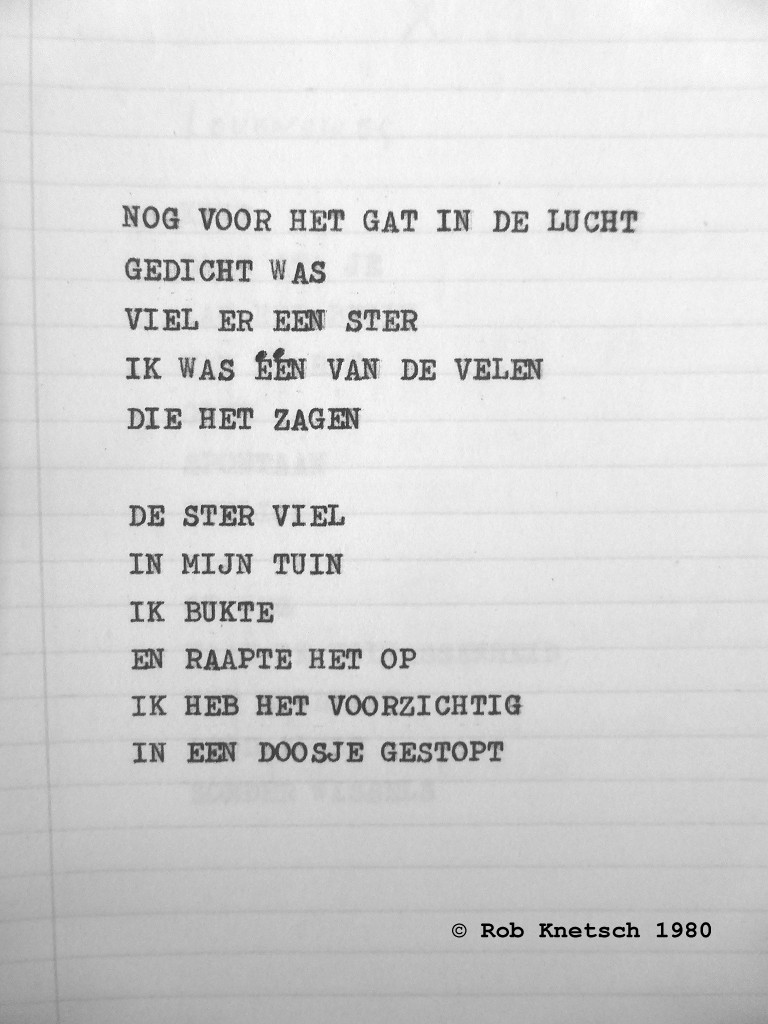 NOG VOOR HET GAT IN DE LUCHT
GEDICHT WAS
VIEL ER EEN STER
IK WAS ÉÉN VAN DE VELEN
DIE HET ZAGEN
DE STER VIEL
IN MIJN TUIN
IK BUKTE
EN RAAPTE HET OP
IK HEB HET VOORZICHTIG
IN EEN DOOSJE GESTOPT
© Rob Knetsch 1980